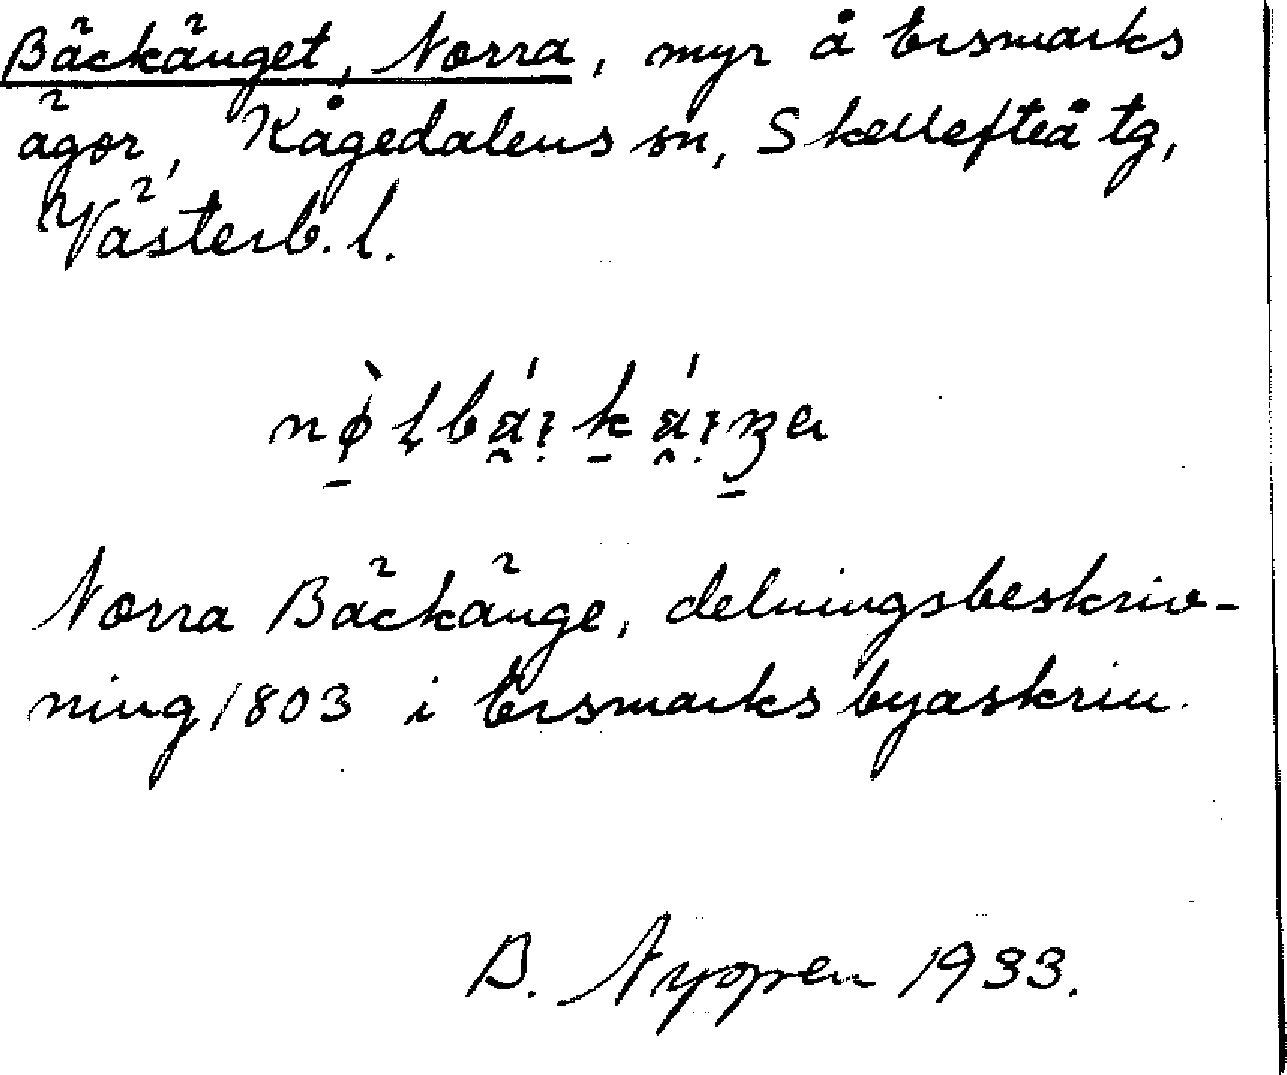 Bäckänget, Norra, myr å Ersmarks
ägor, Kågedalens sn, Skellefteå tg,
Västerb. l.
Norra Bäckänge, delningsbeskriv-
ning 1803 i Ersmarks byaskrin.
B. 1933.